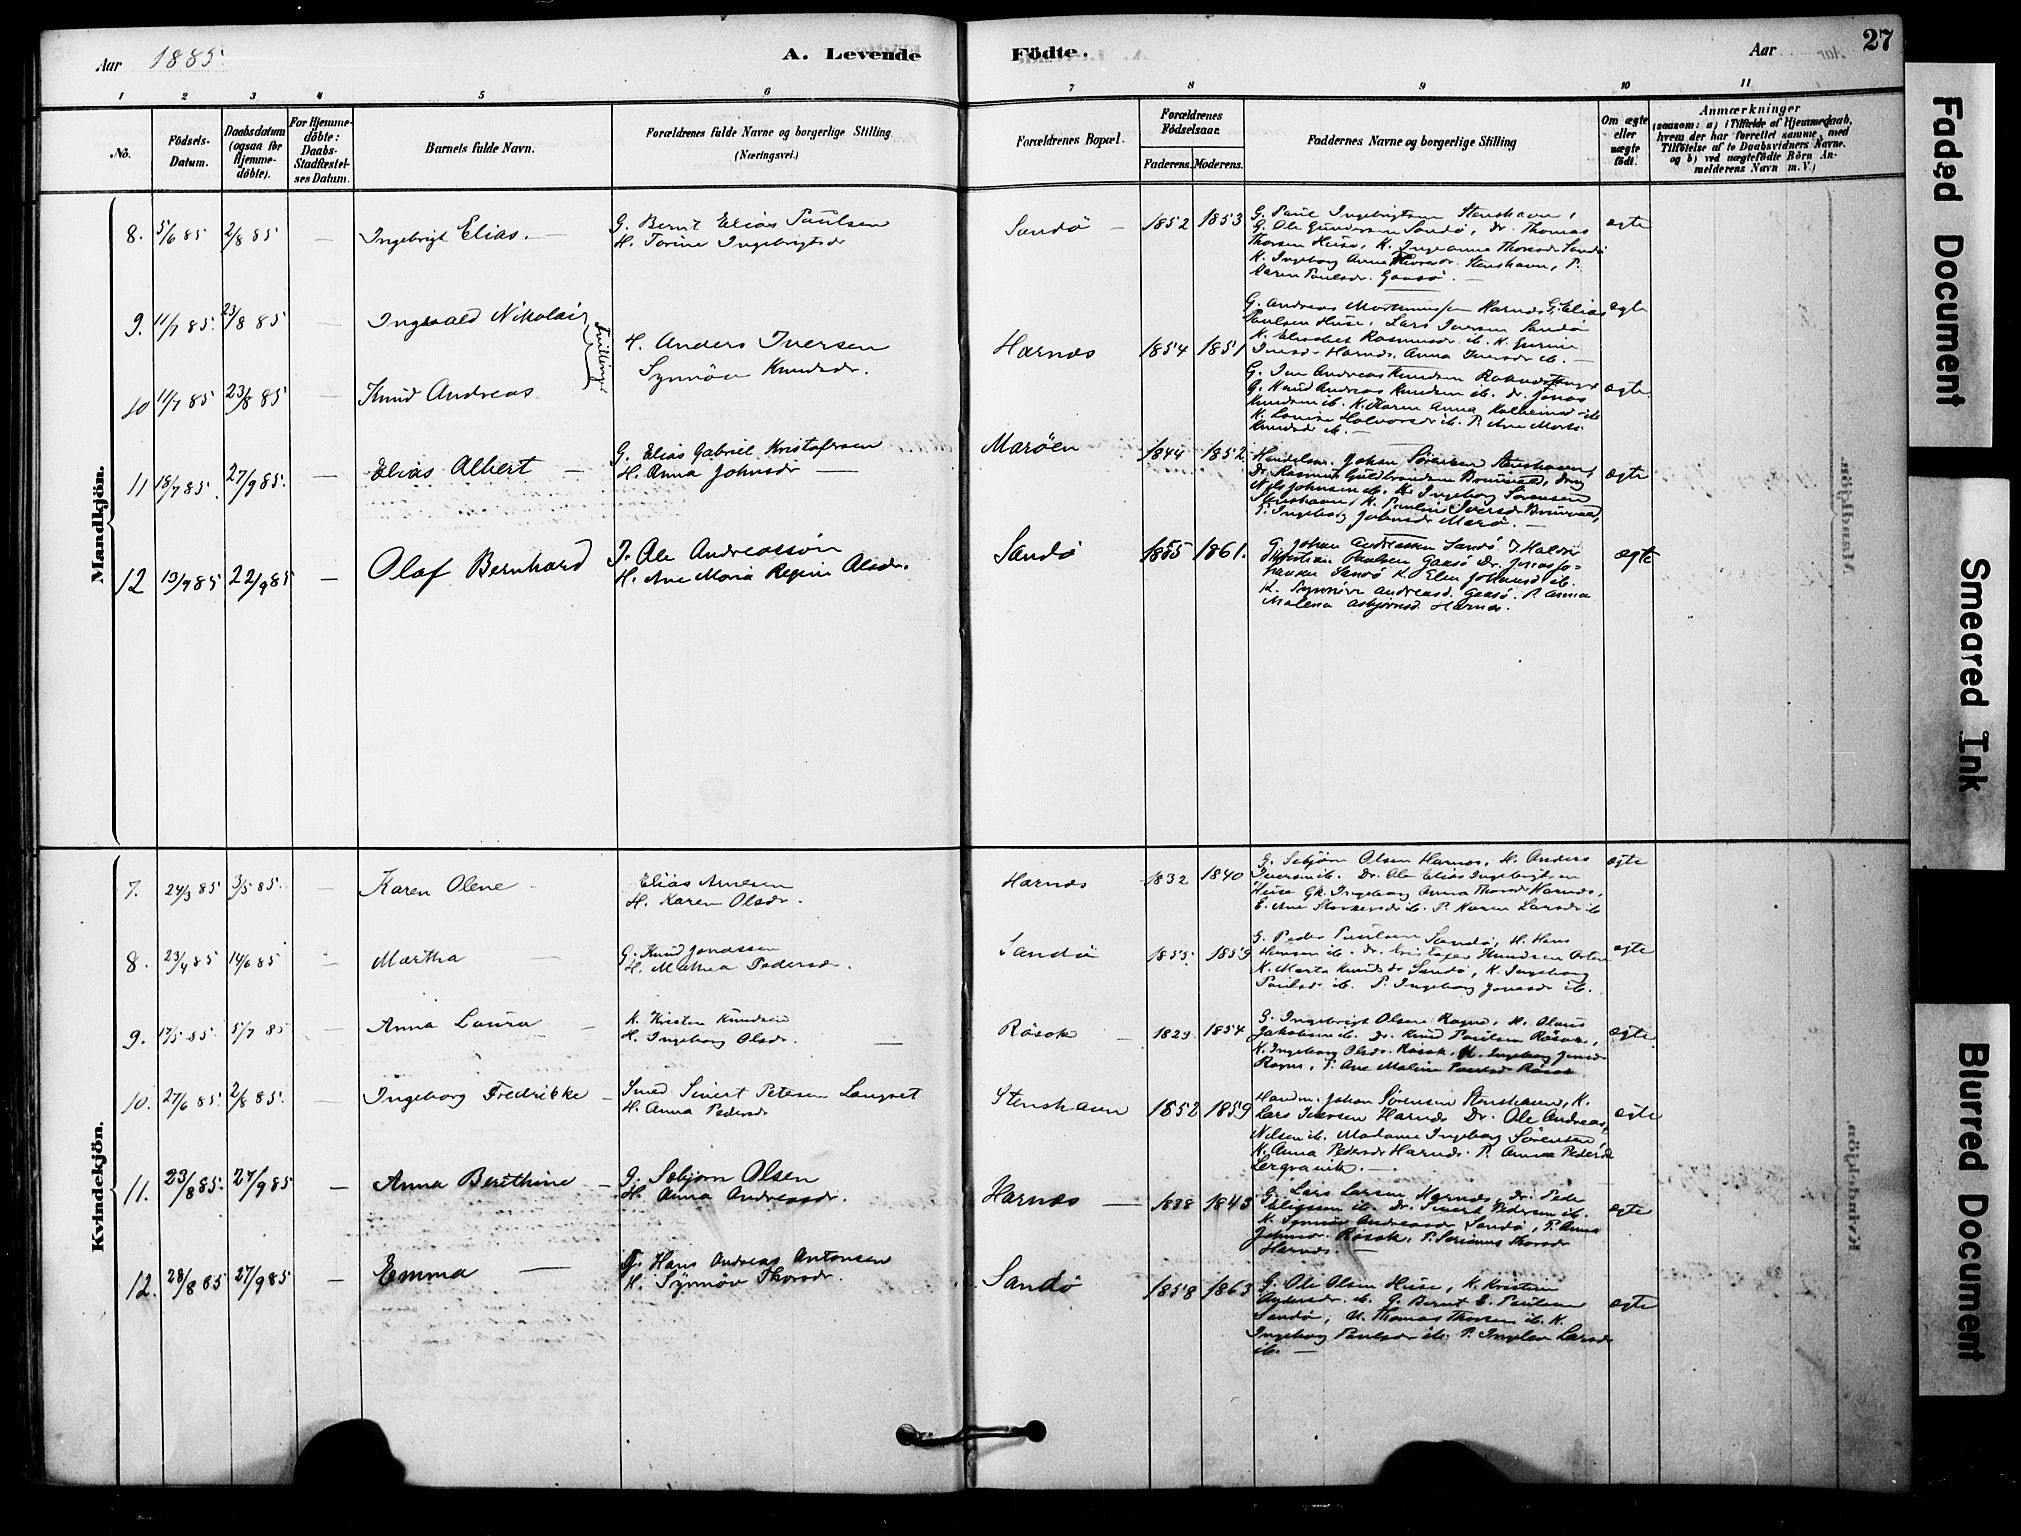 Aar 1885.
A. Levende
Födte.
Aar
27
1 2 3 4 5 6 7 8 9 10 11
Nô.
Födsels-
Datum.
Daabsdatum
(ogsaa for
Hjemme-
döbte).
For Hjemme-
döbte:
Daabs-
Stadfæstel-
ses Datum.
Barnets fulde Navn.
Forældrenes fulde Navne og borgerlige Stilling.
(Næringsvei.)
Forældrenes Bopæl.
Forældrenes
Födselsaar.
Faderens. Moderens.
Faddernes Navne og borgerlige Stilling
Om ægte
eller
uægte
födt.
Anmærkninger
(saasom: a) i Tilfælde af Hjemmedaab,
hvem der har forrettet samme, med
Tilföielse af to Daabsvidners Navne.
og b) ved uægtefödte Börn An-
melderens Navn m.V.)
Mandkjön.
8. 5/6 85 2/8 85 — Ingebrigt Elias. —
G. Bernt Elias Paulsen
H. Torine Ingebrigtsdr
Sandö — 1852 1853
G. Paul Ingebrigtsen Stenshavn,
G. Ole Gundersen Sandö, Dr. Thomas
Thorsen Huse, K. Ingeranna Thorsdr Sandö
K. Ingeborg Anna Thorsdr. Stenshavn, P.
Karen Paulsdr. Gaasö.
ægte
9. 11/7 85. 23/8 85 — Ingvald Nikolai
Tvillinger
H. Anders Iversen
Synnöv Knudsdr.
Harnæs 1854 1851
G. Andreas Harnæs G. Elias
Paulsen Huse, Lars Iversen Sandö
K. Elisabet Rasmusdr. ib. K.
Iversdr Harnæs. Anna Iversdr ib. —
ægte
10 11/7 85 23/8 85 — Knud Andreas
G. Andreas Knudsen
G. Knud Andreas Knudsen ib. Dr. Jonas
Knudsen ib. K. Karen Anna ib
K. Halvorsdr ib. P. Ane
Knudsdr ib. —
ægte
11 18/7 85. 27/9 85. — Elias Albert —
G. Elias Gabriel Kristofersen
H. Anna Johnsdr —
Maröen 1844 1852.
Handelsm. Johan Sörensen Stenshavn,
Dr. Rasmus Guldbrandsen
Nils Johnsen ib. K. Ingeborg Sörensen
Stenshavn, K. Pauline Iversdr
P. Ingeborg Johnsdr Marö. —
ægte
12 19/7 85 22/9 85 — Olaf Bernhard
I. Ole Andreassön
H. Ane Maria Regine Olsdr.
Sandö 1855 1861.
G. Johan Andreassen Sandö I.
Kristian Paulsen Gaasö Dr. Jonas Jo-
hansen Sandö K. Elen Johansd ib.
K. Synnöve Andreasd. Gaasö. P. Anna
Malena Asbjörnsd. Harnæs.
ægte
Kvindekjön.
7. 24/3 85 3/5 85. — Karen Olene
Elias Arnesen
H. Karen Olsdr.
Harnæs 1832 1840
G. Sebjörn Olsen Harnæs, H. Anders
Iversen ib. Dr. Ole Elias Ingebrigtsen
Huse Gk. Ingeborg Anna Thorsdr Harnæs,
E. Ane ib. P. Karen Larsdr ib
ægte
8. 23/4 85 14/6 85 — Martha —
G. Knud Jonassen
H. Mathea Pedersdr.
Sandö 1855. 1859
G. Peder Paulsen Sandö, H. Hans
Hansen ib. Dr. Kristofer Knudsen
K. Marta Knudsdr Sandö, K. Ingeborg
Paulsdr ib. P. Ingeborg Jonasdr ib.
ægte
9. 17/5 85 5/7 85 — Anna Laura —
K. Kristen Knudsen
H. Ingeborg Olsdr. —
Rösok — 1829 1854
G. Ingebrigt Olsen Ragnö, H. Olaus
Jakobsen ib. Dr. Knud Paulsen Rösok,
K. Ingeborg Olsdr. Rösok, K. Ingeborg Jonsdr
P. Ane Malene Paulsdr Rösok
ægte
10. 27/6 85. 2/8 85. — Ingeborg Fredrikke —
Smed Sivert Petersen Langset
H. Anna Pedersdr
Stenshavn 1852 1859
Handm. Johan Sörensen Stenshavn, K.
Lars Iversen Harnæs Dr. Ole Andreas
Nilsen ib. Madame Ingeborg Sörensen
K. Anna Pedersdr Harnæs. P. Anna Pedersdr
Lergravik. —
ægte
11. 23/8 85. 27/9 85 — Anna Berethine —
G. Sebjörn Olsen
H. Anna Andreasdr.
Harnæs — 1838 1843
G. Lars Larsen Harnæs, Dr. Peder
ib. Dr. Sivert Pedersen ib.
K. Synnöv Andreasdr Sandö, P. Anna
Johnsdr. Rösok, P. Serianna Thorsdr
Harnæs. —
ægte
12. 28/8 85 27/9 85 — Emma —
G. Hans Andreas Antonsen
H. Synnöv Thorsdr.
Sandö 1858 1863
G. Ole Olsen Huse, K. Kristine
Andersdr ib. G. Bernt E. Paulsen
Sandö, U. Thomas Thorsen ib. K.
Ingeborg Paulsdr ib. P. Larsdr
ib. —
ægte
Faded Document
Smeared Ink
Blurred Document